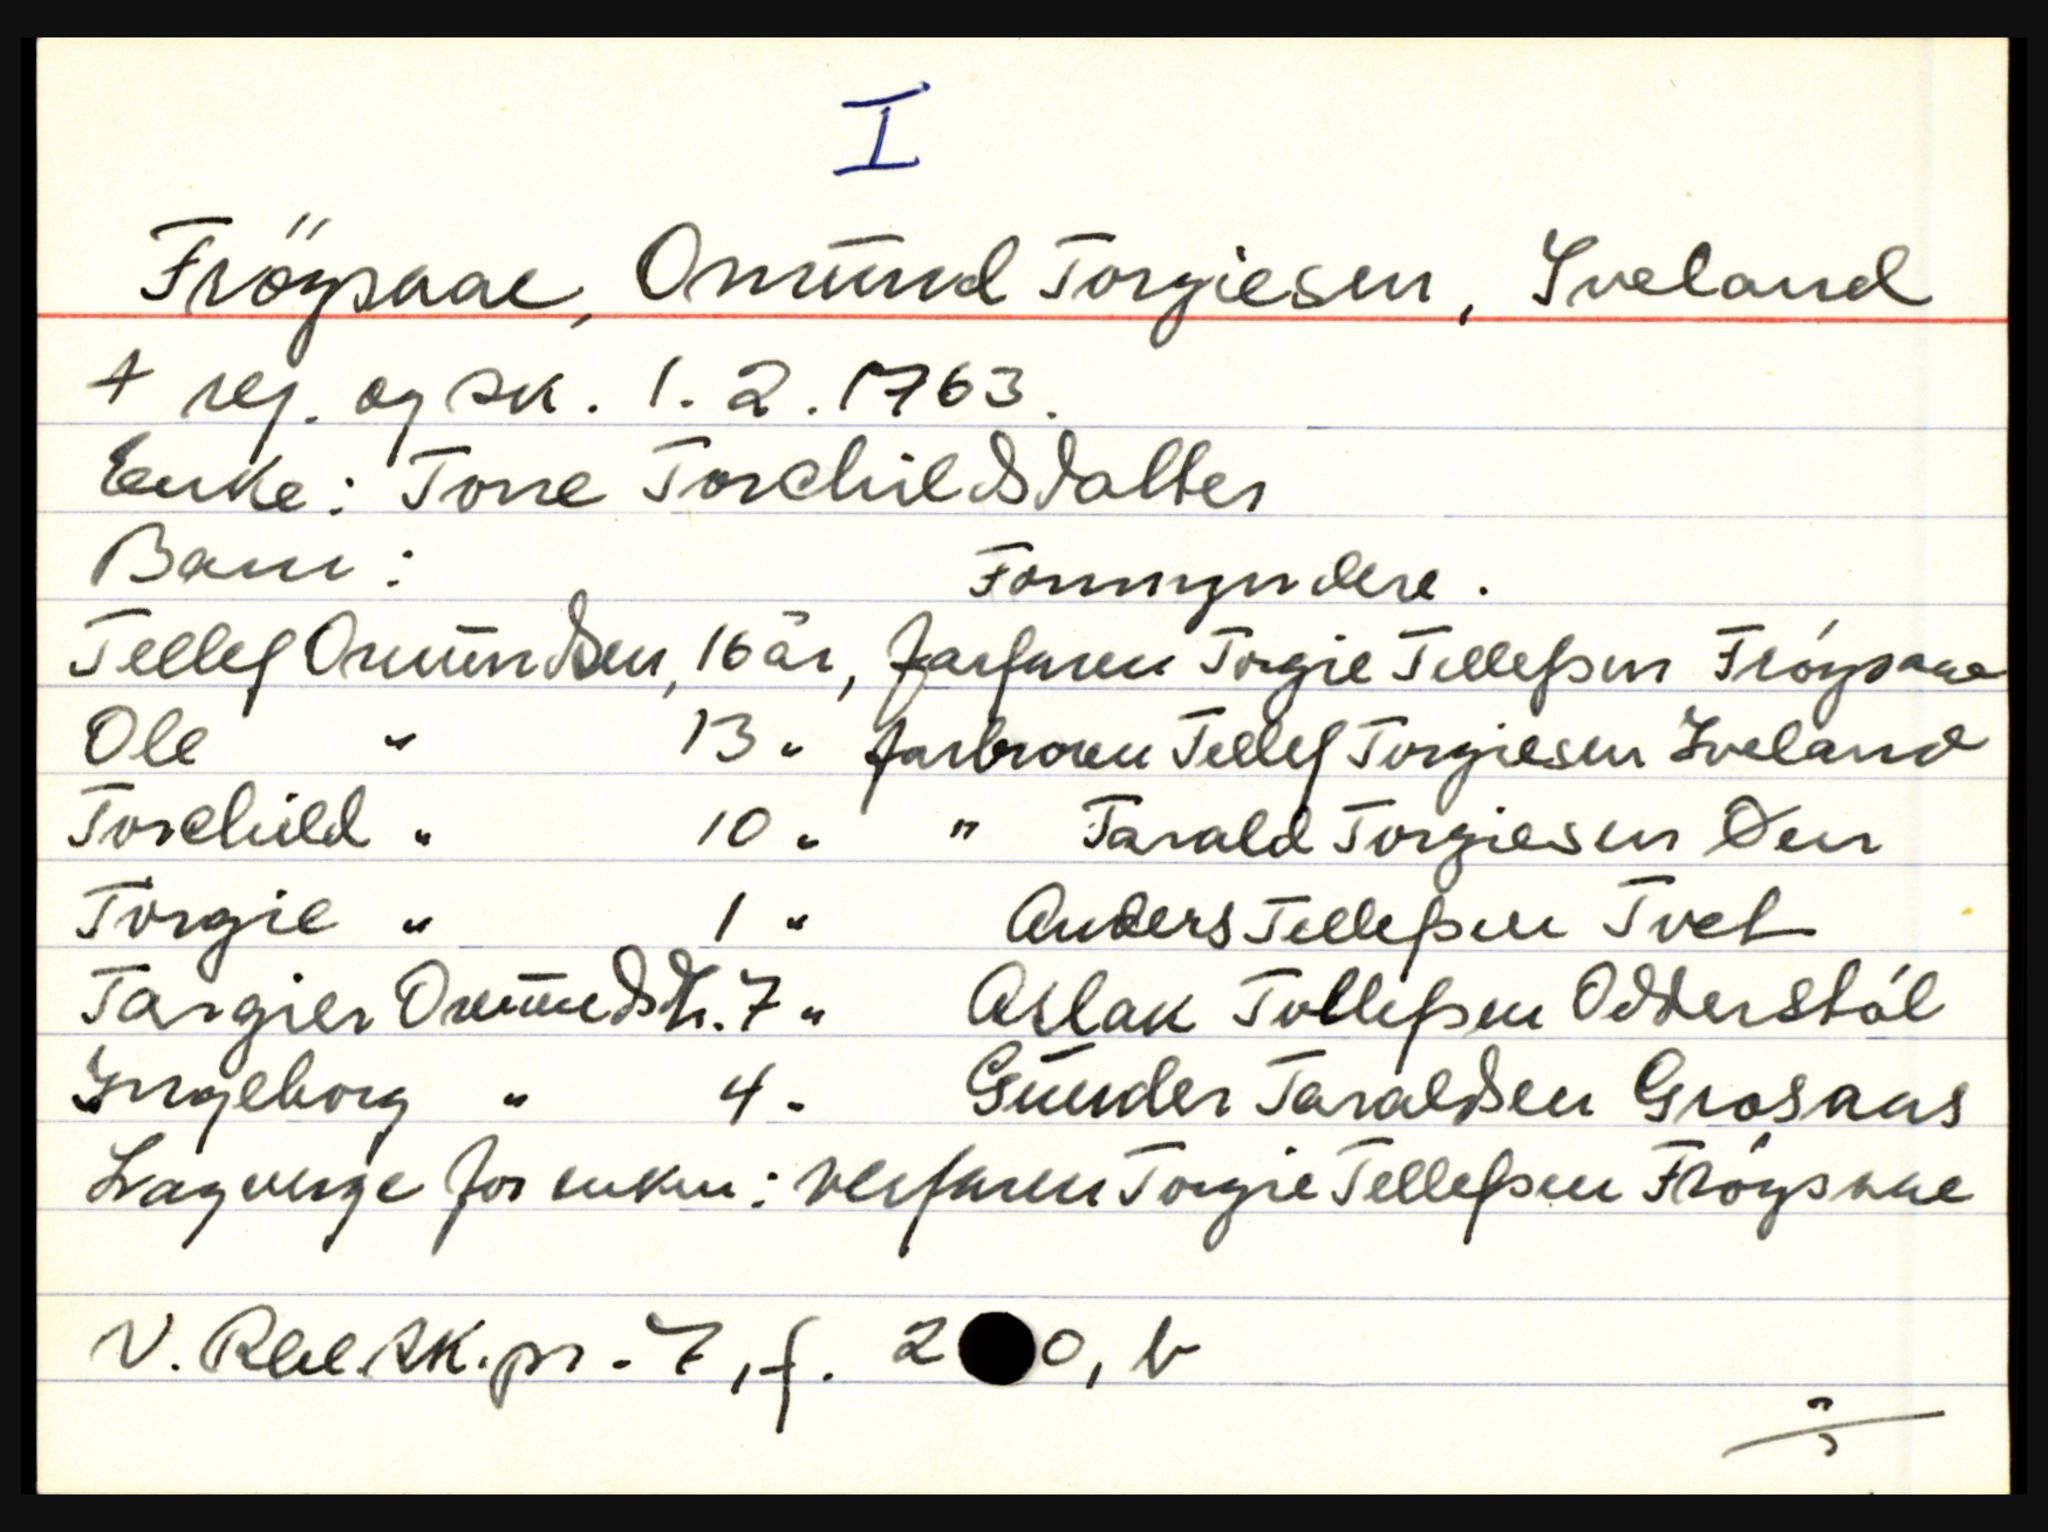 I
Fröysaae, Omund Torgiesen, Iveland
† reg. og sk. 1.2.1763.
Enke: Torre Torchildsdatter
Barn: Formyndere.
Tellef Omundsen, 16 år, farfaren Torgie Tellefsen Fröysaae
Ole " 13 " farbroren Tellef Torgiesen Iveland
Torchild " 10 " " Tarald Torgiesen Øen
Torgie " 1 " Anders Tellefsen Tvet
Targier Omundsdr. 7 " Aslak Tollefsen Odderstøl
Ingeborg " 4 " Gunder Taraldsen Grosaas
Lagverge for enken: verfaren Torgie Tellefsen Fröysaae
V. Råb. sk.pr. 7, f. 2 0, b